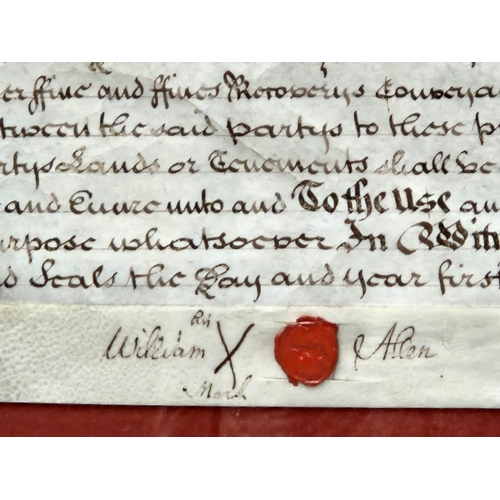 er ffine and ffines Recoverys Conveya
tween the said partys to these p
rtys Lands or Tenements shall be
and Enure unto and To the Use an
urpose whatsoever In Witn
d Seals the Day and year first
his
William X Allen
Mark